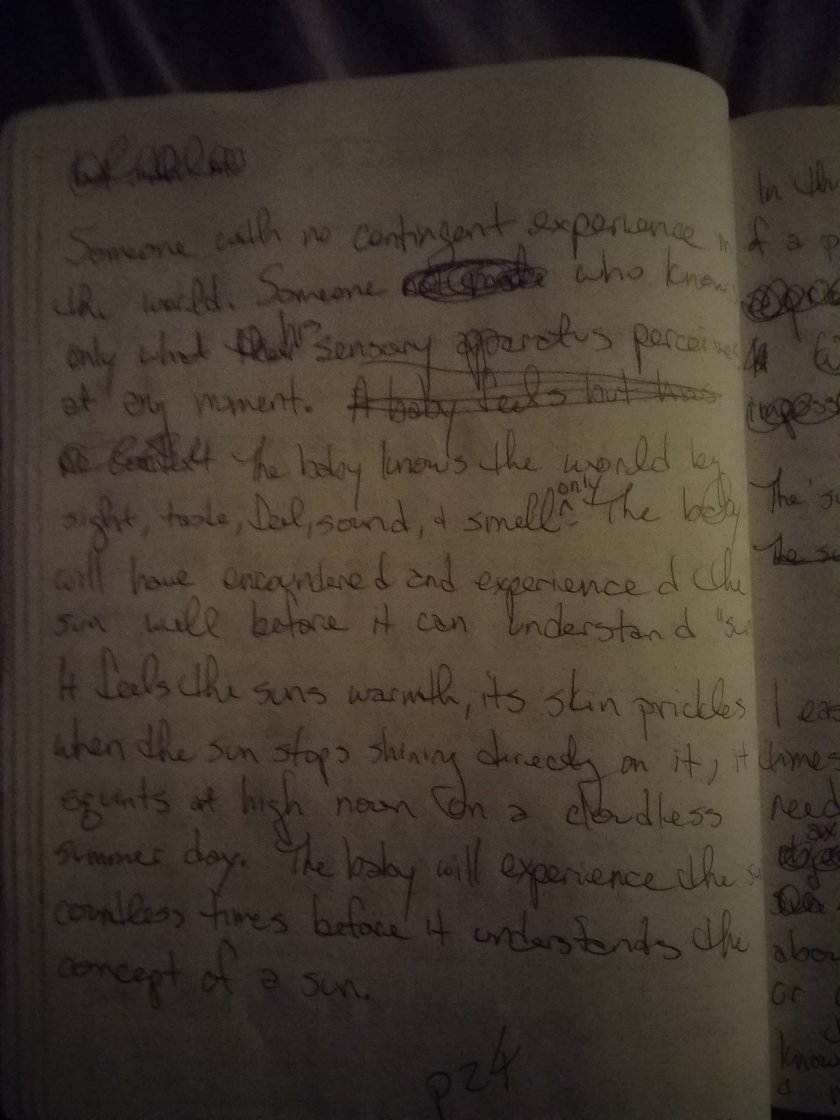 Someone with no contingent experience in
the world. Someone who knows
only what his sensory apparatus perceives
at any moment. A baby feels but has
no context The baby knows the world by
sight, taste, feel, sound, & smell only. The baby
will have encountered and experienced the
sun well before it can understand "sun
It feels the suns warmth, its skin prickles
when the sun stops shining directly on it, it
squints at high noon on a cloudless
summer day. The baby will experience the
countless times before it understands the
concept of a sun.
p24
In th
of a p
The s
The su
I eas
times
need
abou
or
know